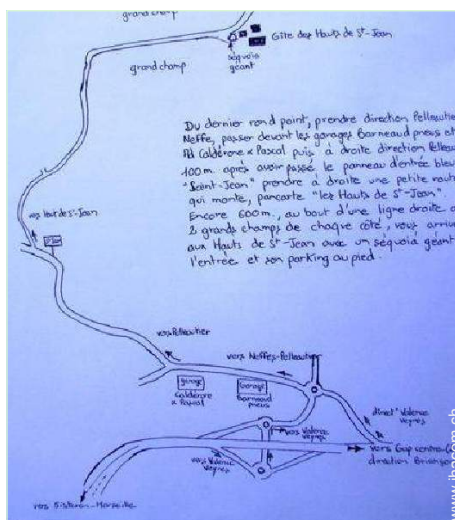 grand champ
Gîte des Hauts de St-Jean
séquoia
géant
grand champ
Du dernier rond point, prendre direction Pelleautier
Neffe, passer devant les garages Barneaud pneus et
Ad Caldérone x Pascal puis à droite direction Pelleau
100 m après avoir passé le panneau d'entrée bleu
"Saint-Jean" prendre à droite une petite route
qui monte, pancarte "les Hauts de St-Jean".
Encore 600m, au bout d'une ligne droite a
2 grands champs de chaque côté, vous arriv
aux Hauts de St-Jean avec un séquoia géant
l'entrée et son parking au pied.
vers Haut de St-Jean
St Jean
vers Pelleautier
vers Neffes-Pelleautier
garage
Caldérone
x Pascal
Garage
Barneaud
pneus
direct° Valence
Veynes
vers Valence
Veynes
vers Gap centre
direction Briançon
vers Valence
Veynes
vers Sisteron-Marseille